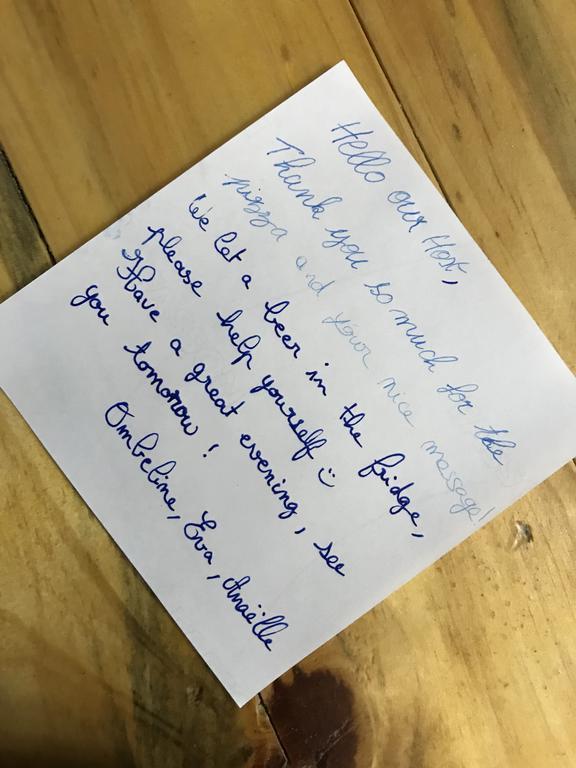 Hello our Host,
Thank you so much for the
pizza and your nice message!
We let a beer in the fridge,
please help yourself :)
Have a great evening, see
you tomorrow!
Ombeline, Eva, Anaëlle